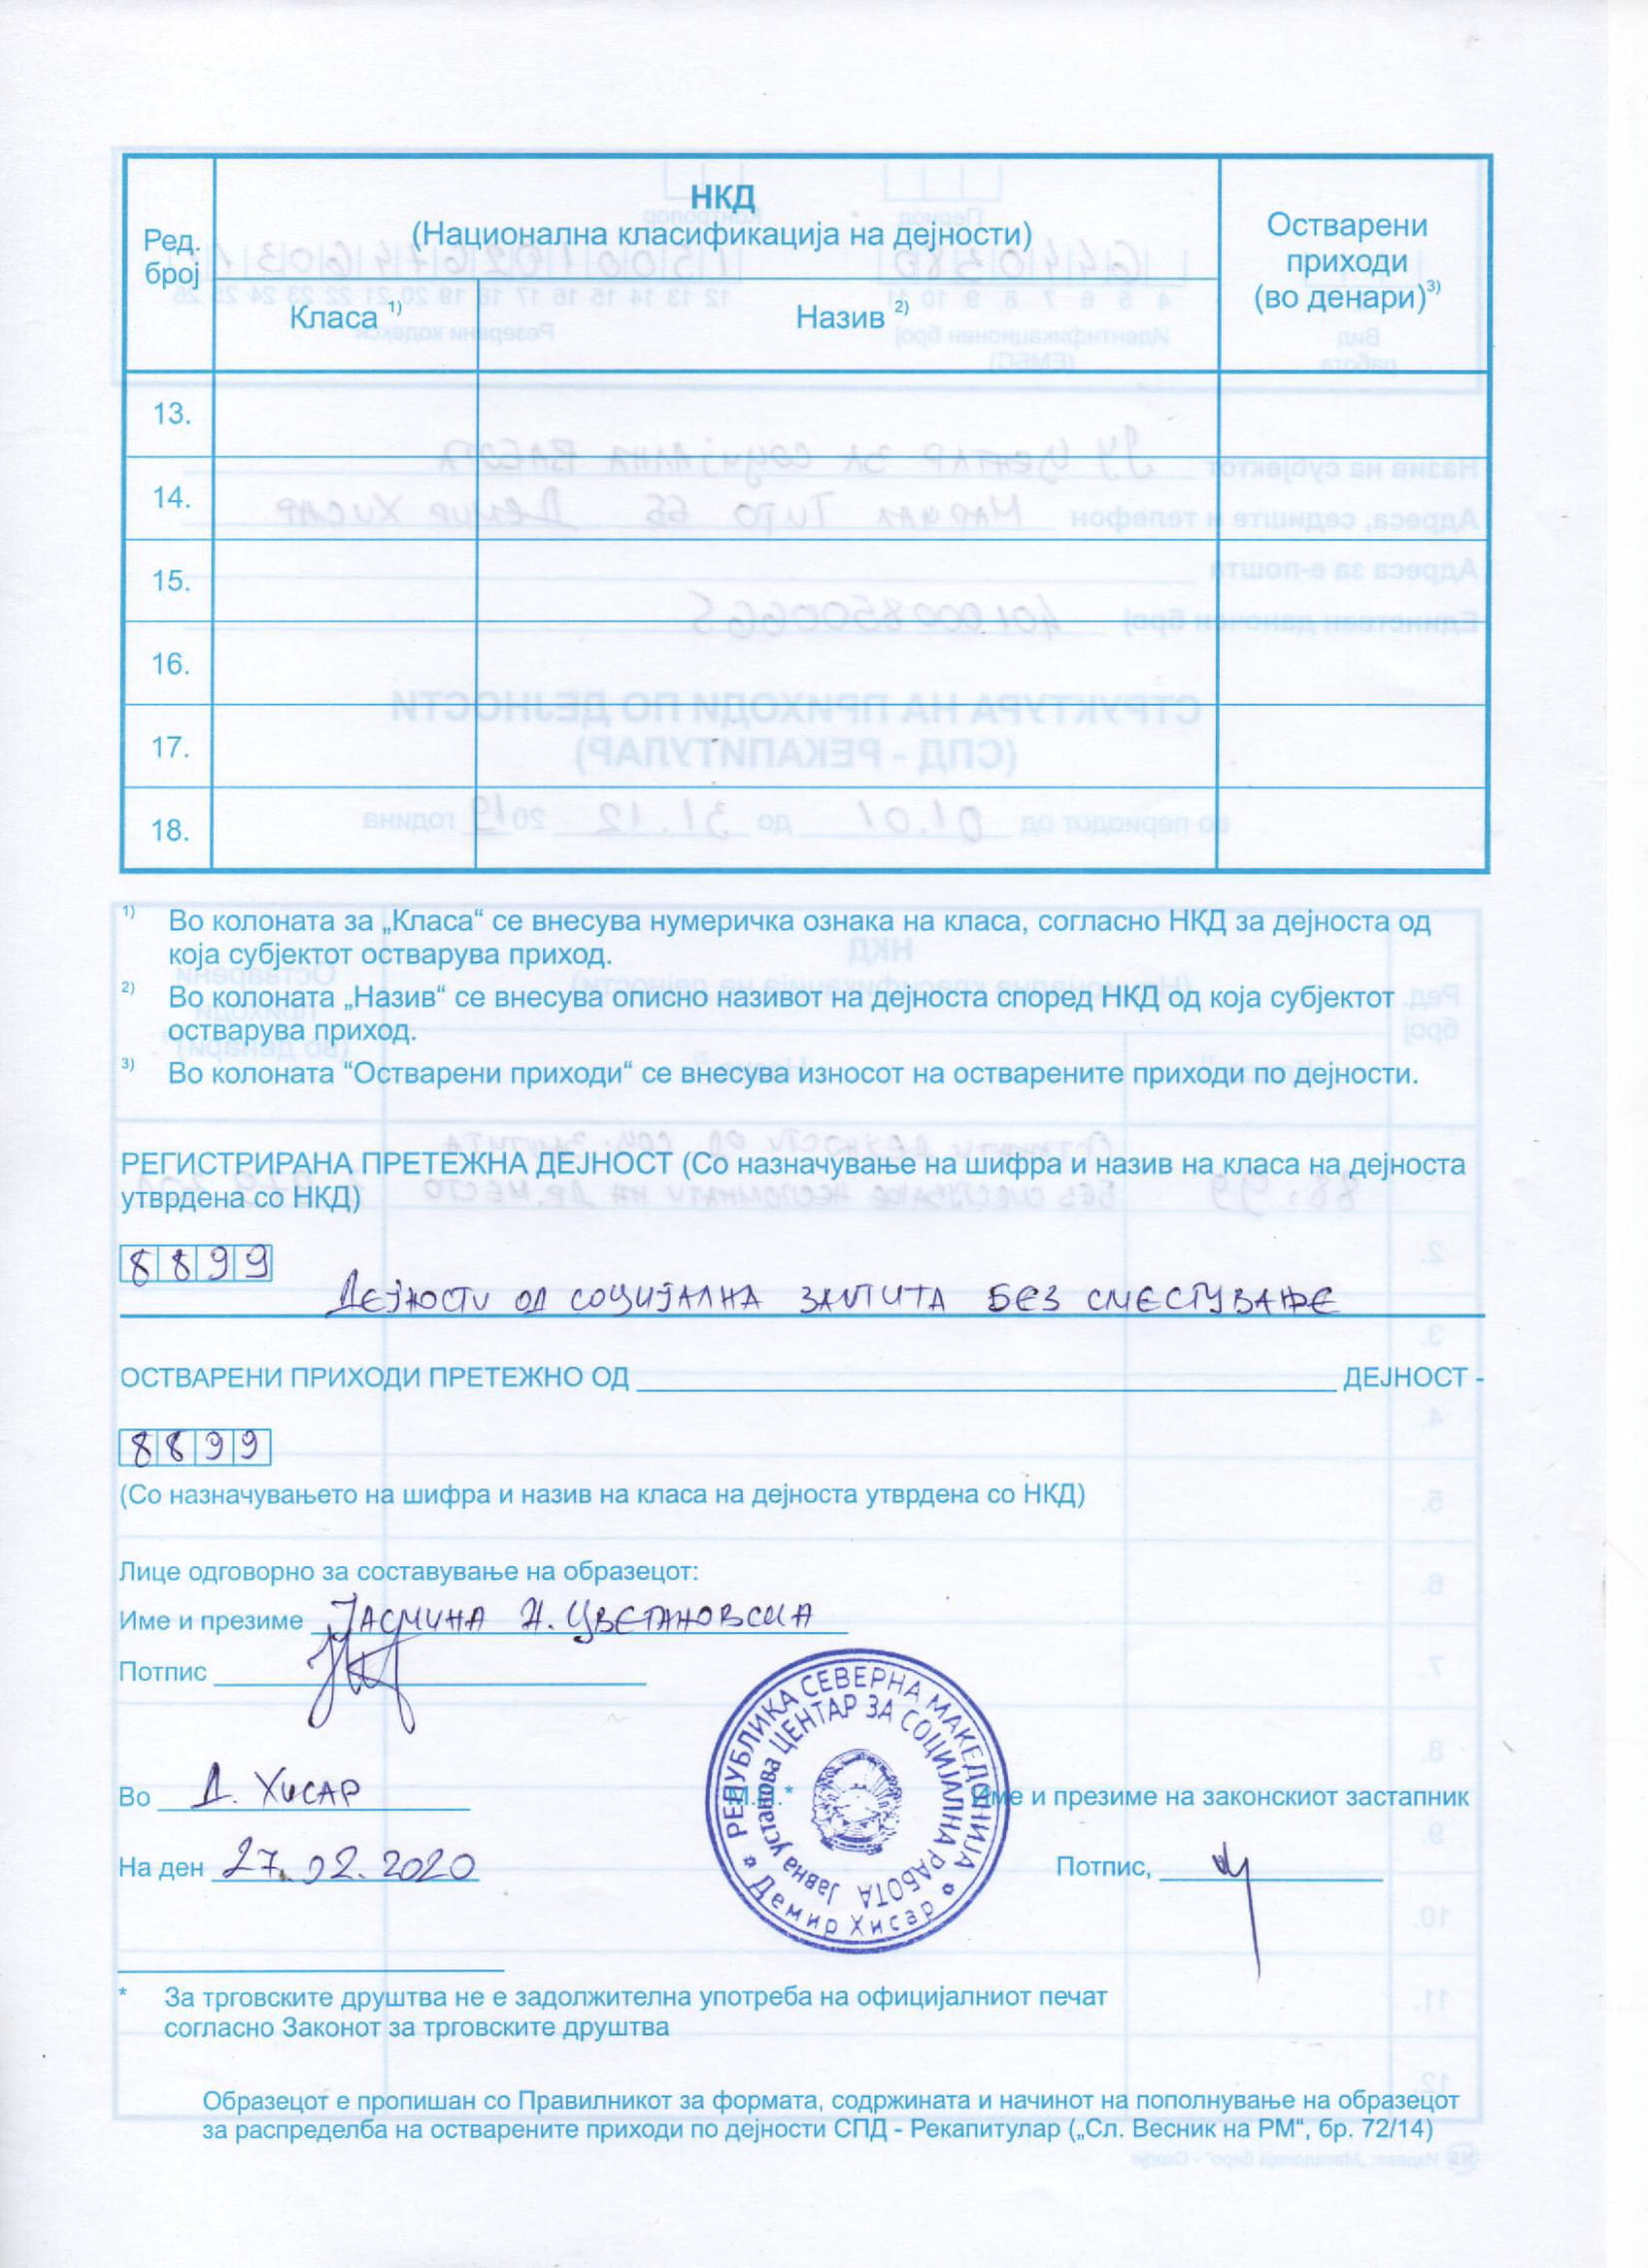 Ред. број
НКД
(Национална класификација на дејности)
Класа 1)
Назив 2)
Остварени приходи (во денари)3)
13.
14.
15.
16.
17.
18.
1) Во колоната за „Класа“ се внесува нумеричка ознака на класа, согласно НКД за дејноста од
која субјектот остварува приход.
2) Во колоната „Назив“ се внесува описно називот на дејноста според НКД од која субјектот
остварува приход.
3) Во колоната “Остварени приходи“ се внесува износот на остварените приходи по дејности.
РЕГИСТРИРАНА ПРЕТЕЖНА ДЕЈНОСТ (Со назначување на шифра и назив на класа на дејноста
утврдена со НКД)
8899
Дејности од социјална заштита без сместување
ОСТВАРЕНИ ПРИХОДИ ПРЕТЕЖНО ОД ДЕЈНОСТ -
8899
(Со назначувањето на шифра и назив на класа на дејноста утврдена со НКД)
Лице одговорно за составување на образецот:
Име и презиме Јасмина Н. Цветановска
Потпис
РЕПУБЛИКА СЕВЕРНА МАКЕДОНИЈА
Јавна установа ЦЕНТАР ЗА СОЦИЈАЛНА РАБОТА
Демир Хисар
Во Д. Хисар
М.П.*
Име и презиме на законскиот застапник
На ден 27.02.2020
Потпис,
* За трговските друштва не е задолжителна употреба на официјалниот печат
согласно Законот за трговските друштва
Образецот е пропишан со Правилникот за формата, содржината и начинот на пополнување на образецот
за распределба на остварените приходи по дејности СПД - Рекапитулар („Сл. Весник на РМ“, бр. 72/14)